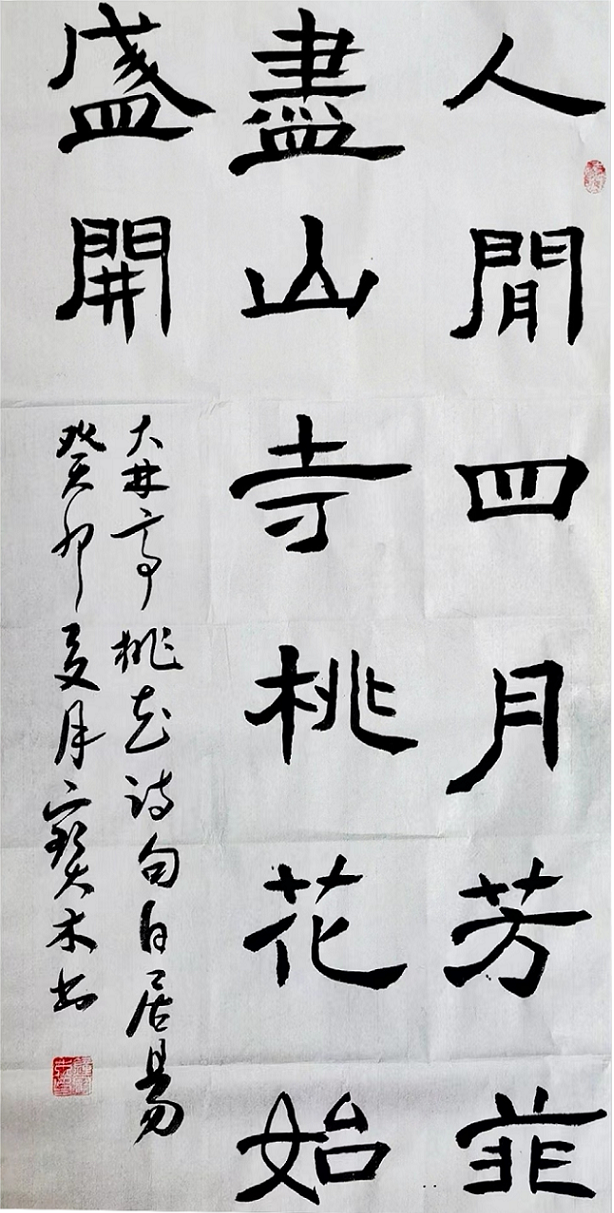 人閒四月芳菲
盡山寺桃花始
盛開
大林寺桃花诗句白居易
癸卯夏月寶木书